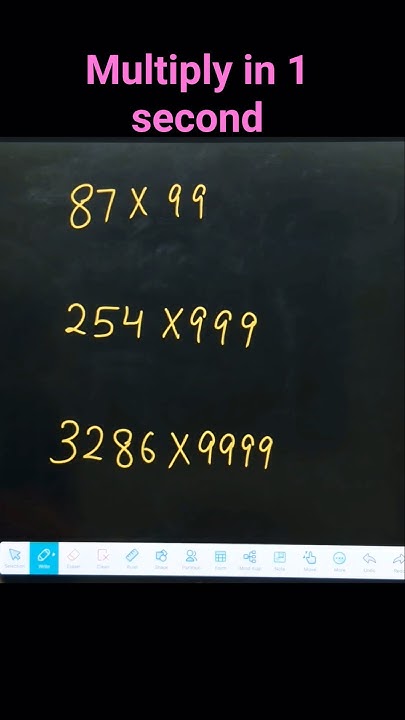 Multiply in 1
second
87 X 99
254 X 999
3286 X 9999
Selection Write Eraser Clean Ruler Shape Function Form Mind map Note Move More Undo